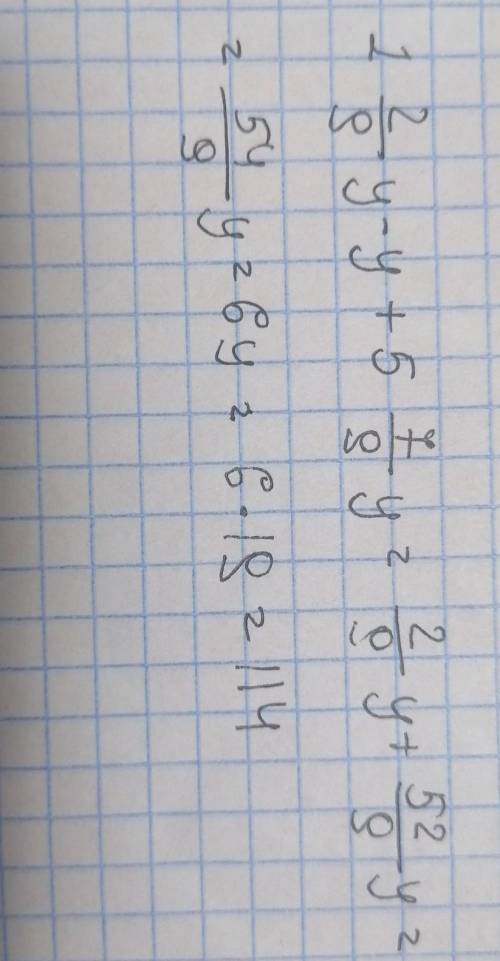 1 2/9 y - y + 5 7/9 y = 2/9 y + 52/9 y =
= 54/9 y = 6y = 6 · 19 = 114